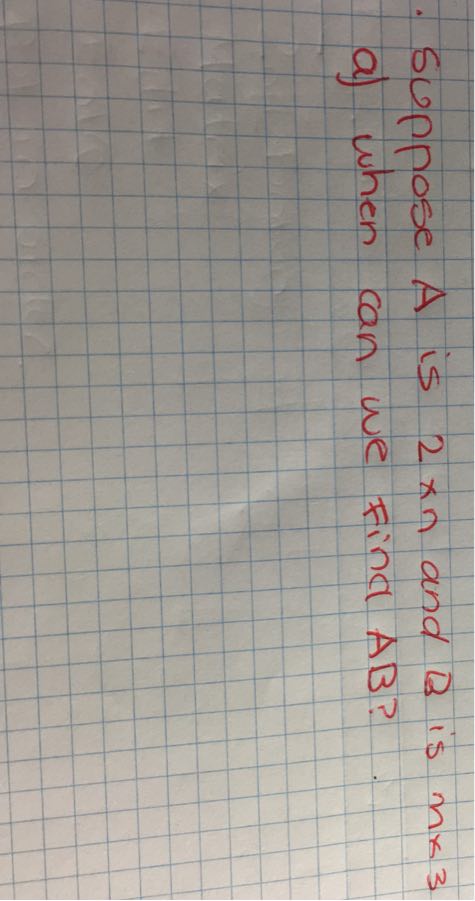 . Suppose A is 2xn and B is mx3
a) when can we find AB?